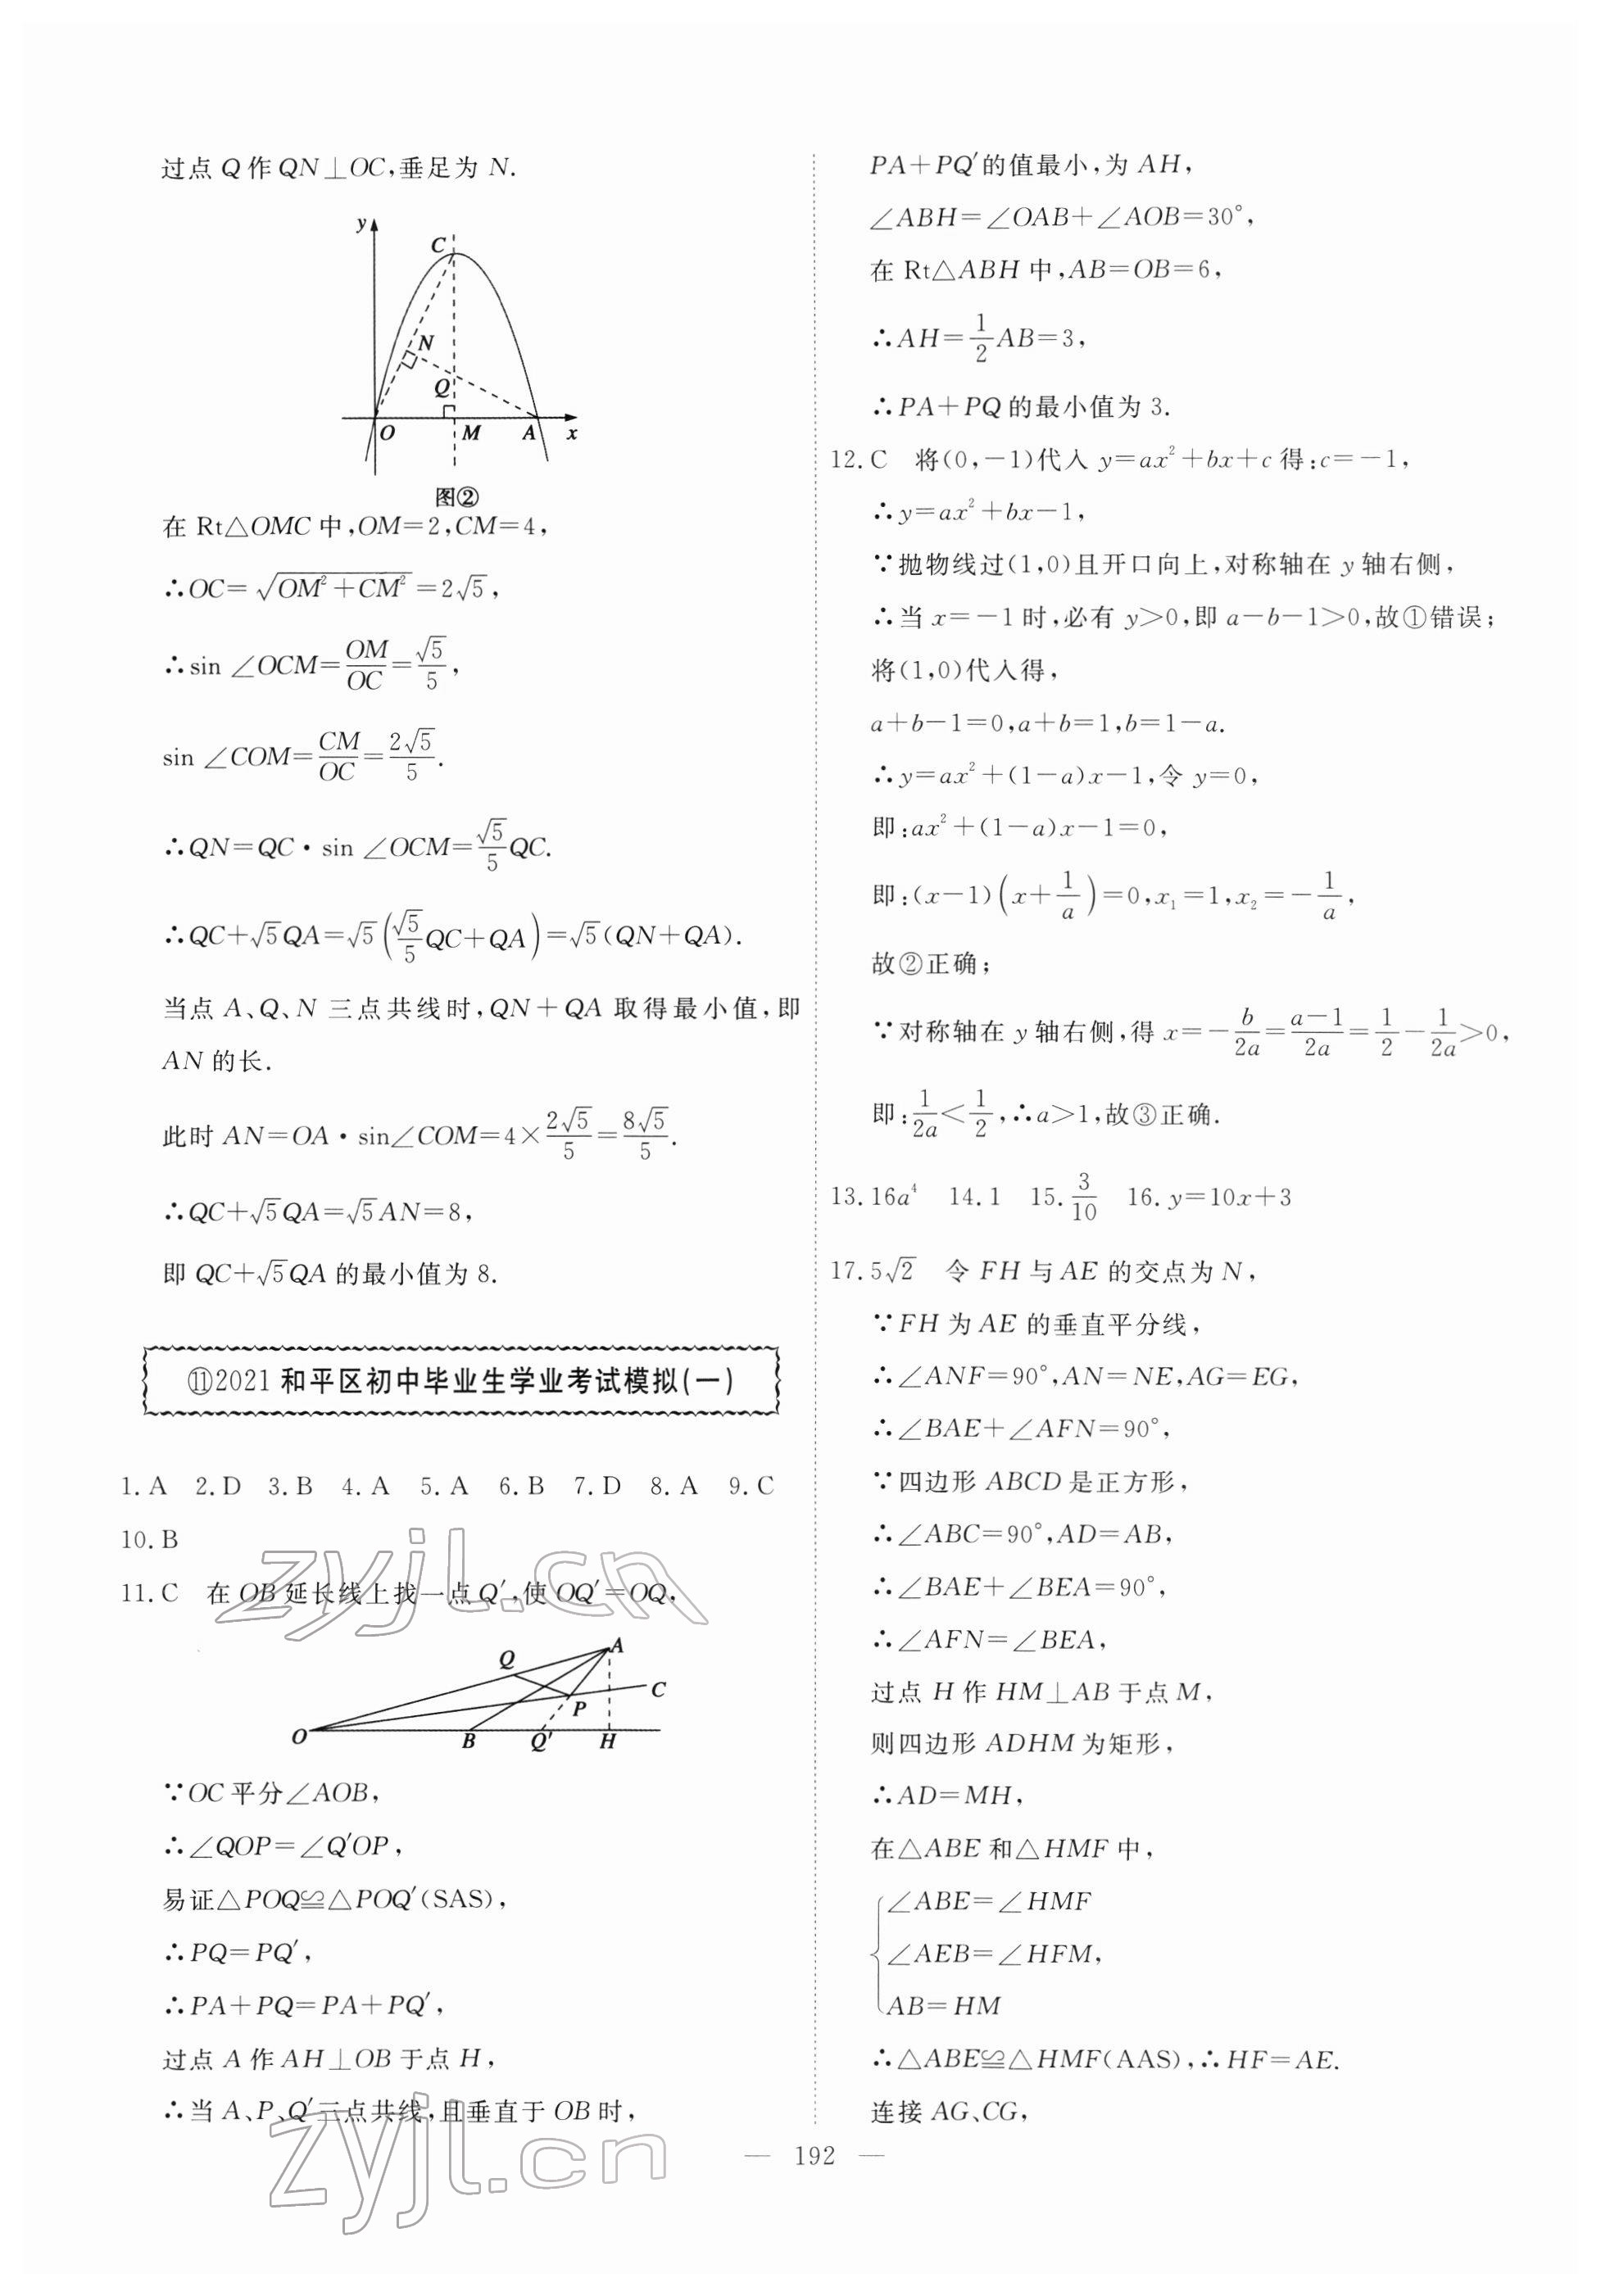 过点 Q 作 QN⊥OC,垂足为 N.
y
C
N
Q
O M A x
图②
在 Rt△OMC 中,OM=2,CM=4,
∴OC=√(OM²+CM²)=2√5,
∴sin∠OCM=OM/OC=√5/5,
sin∠COM=CM/OC=2√5/5.
∴QN=QC·sin∠OCM=√5/5QC.
∴QC+√5QA=√5(√5/5QC+QA)=√5(QN+QA).
当点 A、Q、N 三点共线时,QN+QA 取得最小值,即
AN 的长.
此时 AN=OA·sin∠COM=4×2√5/5=8√5/5.
∴QC+√5QA=√5AN=8,
即 QC+√5QA 的最小值为 8.
⑪2021 和平区初中毕业生学业考试模拟(一)
1.A 2.D 3.B 4.A 5.A 6.B 7.D 8.A 9.C
10.B
11.C 在 OB 延长线上找一点 Q′,使 OQ′=OQ,
zyjl.cn
Q A
P C
O B Q′ H
∵OC 平分∠AOB,
∴∠QOP=∠Q′OP,
易证△POQ≌△POQ′(SAS),
∴PQ=PQ′,
∴PA+PQ=PA+PQ′,
过点 A 作 AH⊥OB 于点 H,
∴当 A、P、Q′三点共线,且垂直于 OB 时,
zyjl.cn
PA+PQ′的值最小,为 AH,
∠ABH=∠OAB+∠AOB=30°,
在 Rt△ABH 中,AB=OB=6,
∴AH=1/2AB=3,
∴PA+PQ 的最小值为 3.
12.C 将(0,-1)代入 y=ax²+bx+c 得:c=-1,
∴y=ax²+bx-1,
∵抛物线过(1,0)且开口向上,对称轴在 y 轴右侧,
∴当 x=-1 时,必有 y>0,即 a-b-1>0,故①错误;
将(1,0)代入得,
a+b-1=0,a+b=1,b=1-a.
∴y=ax²+(1-a)x-1,令 y=0,
即:ax²+(1-a)x-1=0,
即:(x-1)(x+1/a)=0,x₁=1,x₂=-1/a,
故②正确;
∵对称轴在 y 轴右侧,得 x=-b/2a=a-1/2a=1/2-1/2a>0,
即:1/2a<1/2,∴a>1,故③正确.
13.16a⁴ 14.1 15.3/10 16.y=10x+3
17.5√2 令 FH 与 AE 的交点为 N,
∵FH 为 AE 的垂直平分线,
∴∠ANF=90°,AN=NE,AG=EG,
∴∠BAE+∠AFN=90°,
∵四边形 ABCD 是正方形,
∴∠ABC=90°,AD=AB,
∴∠BAE+∠BEA=90°,
∴∠AFN=∠BEA,
过点 H 作 HM⊥AB 于点 M,
则四边形 ADHM 为矩形,
∴AD=MH,
在△ABE 和△HMF 中,
∠ABE=∠HMF
∠AEB=∠HFM,
AB=HM
∴△ABE≌△HMF(AAS),∴HF=AE.
连接 AG、CG,
— 192 —